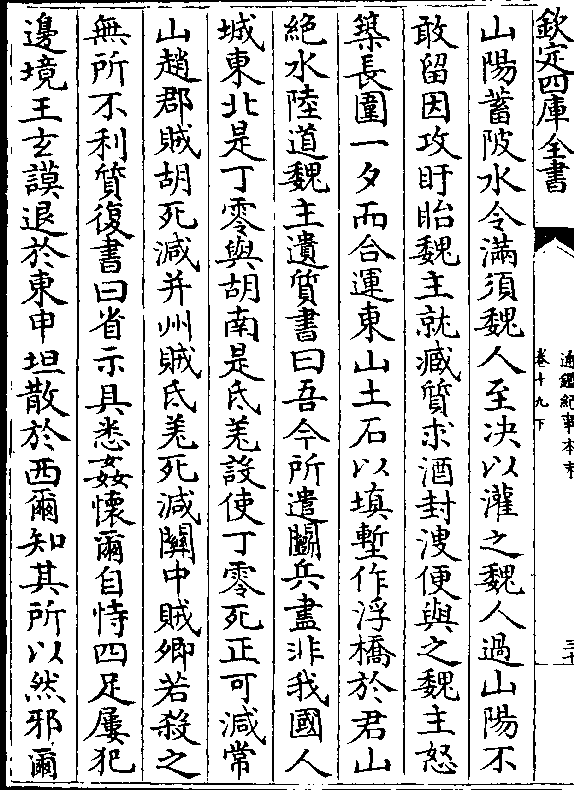 欽定四庫全書
通鑑紀事本末
卷十九下
三十
山陽蓄陂水令滿須魏人至决以灌之魏人過山陽不
敢留因攻盱眙魏主就臧質求酒封溲便與之魏主怒
築長圍一夕而合運東山土石以填塹作浮橋於君山
絶水陸道魏主遺質書曰吾今所遣鬭兵盡非我國人
城東北是丁零與胡南是氐羌設使丁零死正可減常
山趙郡賊胡死減并州賊氐羌死減關中賊卿若殺之
無所不利質復書曰省示具悉姦懷爾自恃四足屢犯
邊境王玄謨退於東申坦散於西爾知其所以然邪爾